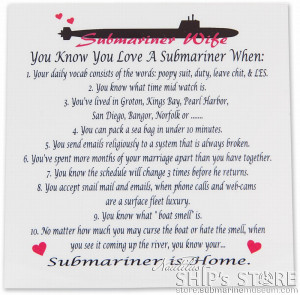 Submariner Wife
You Know You Love A Submariner When:
1. Your daily vocab consists of the words: poopy suit, duty, leave chit, & LES.
2. You know what time mid watch is.
3. You've lived in Groton, Kings Bay, Pearl Harbor,
San Diego, Bangor, Norfolk or ......
4. You can pack a sea bag in under 10 minutes.
5. You send emails religiously to a system that is always broken.
6. You've spent more months of your marriage apart than you have together.
7. You know the schedule will change 3 times before he returns.
8. You accept snail mail and emails, when phone calls and web-cams
are a surface fleet luxury.
9. You know what "boat smell" is.
10. No matter how much you may curse the boat or hate the smell, when
you see it coming up the river, you know your...
Submariner is Home.
Nautilus
SHIP'S STORE
store.submarinemuseum.com